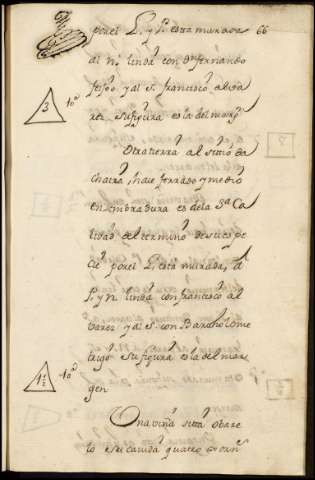 por el L. y P. esta murada 66
al n.º linda con Dn fernando
feijoo y al S. francisco alva
rez. Su figura es la del marg.n
3 10ª
Otra tierra al sittio da
chaira, haze ferrado y medio
en sembradura es de la 2ª Ca
lidad del termino de su espe
cie por el L. esta murada, al
P. y n. linda con francisco al
varez y al S. con Bartholome
trigo Su figura es la del mar
gen
1½ 10ª
Una viña sittª
su cavida quatro